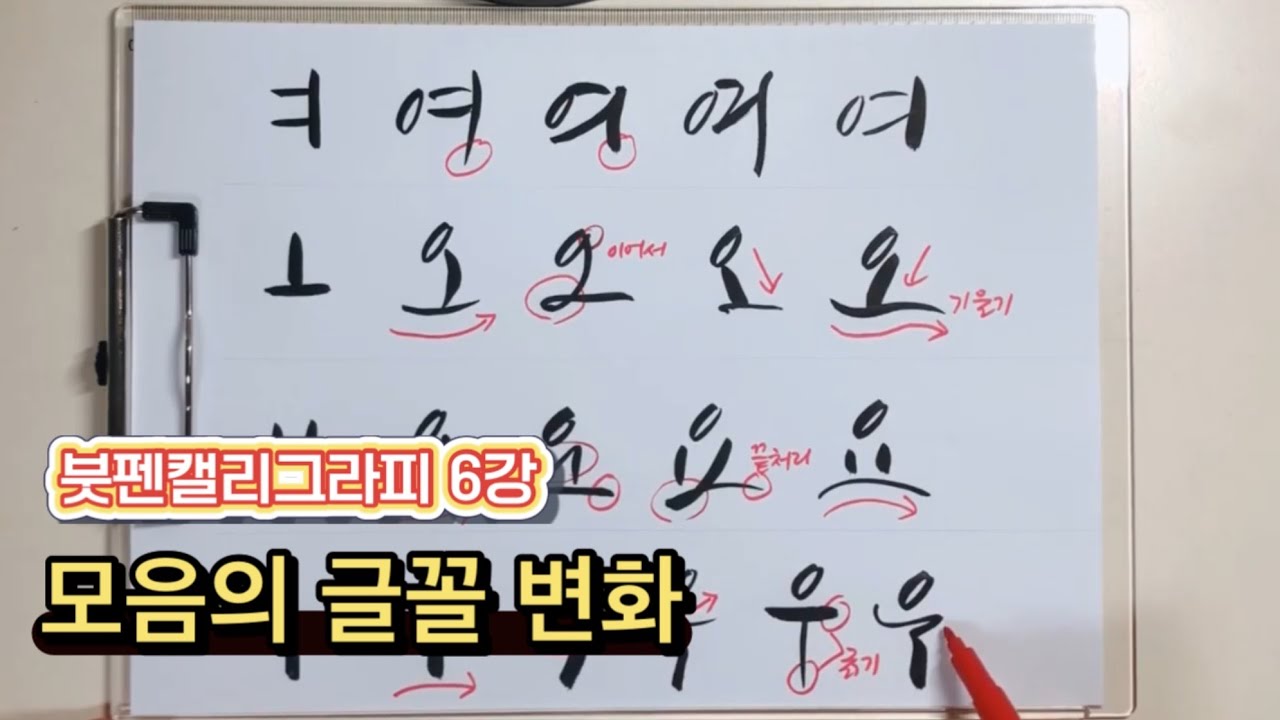 ㅕ 여 여 여 여
ㅗ 오 오 이어서 오 오 기울기
요 요 끝처리 요
우 굵기 우
붓펜캘리그라피 6강
모음의 글꼴 변화